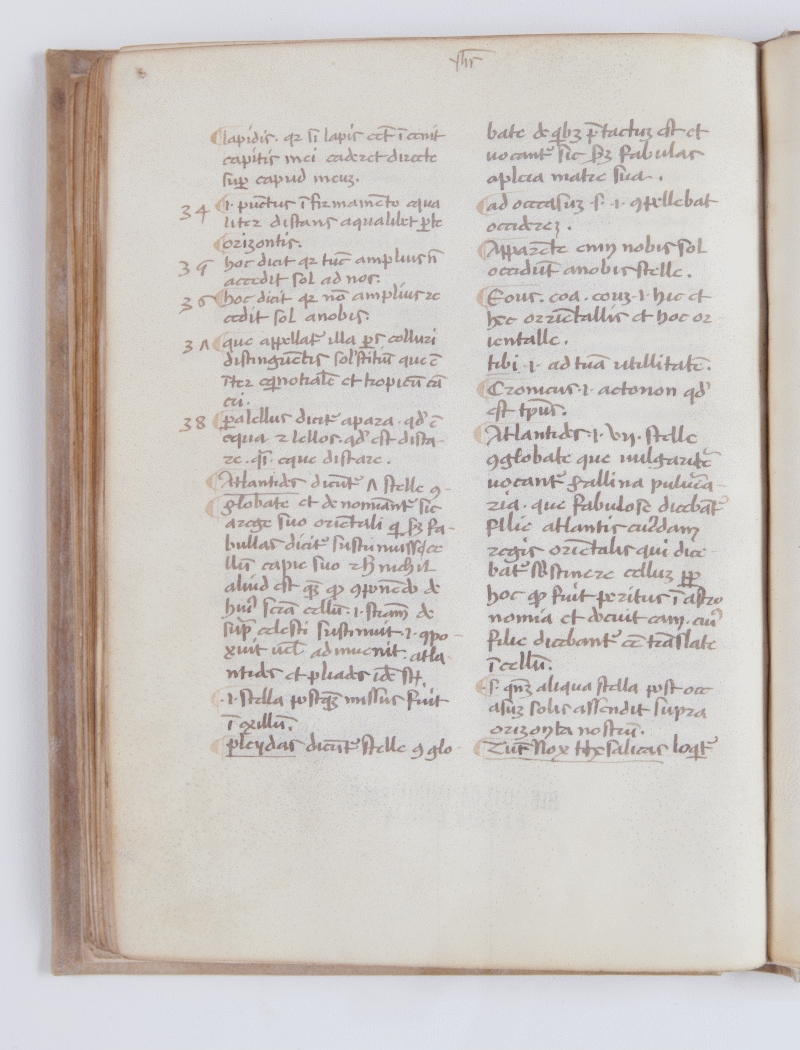 lapidis. qr si lapis eēt ī cenit
capitis mei caderet directe
sup capud meuʒ.
34 .i. pūctus ī firmamēto equa
liter distans aqualilet pte
orizontis.
35 hoc dicit qr tūc amplius n̄
accedit sol ad nos.
36 hoc dicit qr nō amplius re
cedit sol anobis.
37 que appellat illa ps colluri
distinguētis solstitiū que ē
īter eqnotialē et tropicū cā
cri.
38 palellus dicit apara. qd ē
equa ⁊ lellos. qd est dista-
re. qsi eque distare.
Atlantides dicūt 7 stelle ꝯ-
globate et denomīant sic
arege suo oriētali q sʒ fa-
bullas dicit
llū capite suo ⁊ nichil
aliud est ꝙ ꝯponēdo de
sup celesti sustinuit .i. ꝯpo-
xuit uel adinuenit. atla-
ntides et pliades idē st.
.i. stella postqʒ missus fuit
ī exilluʒ.
pleydas dicūt stelle ꝯglo-
bate de qbʒ ptactuʒ est et
uocant sic sʒ fabulas
apleia matre sua.
ad occasuʒ .s. .i. ꝯpellebat
occidereʒ.
Apparēte enī nobis sol
occidūt anobis stelle.
Eous. eoa. eouʒ .i. hic et
hec orīētallis et hoc or-
ientalle.
tibi .i. ad tuā utillitatē.
Cronicus .i. acronon qd
est tpus.
Atlantides .i. vij. stelle
ꝯglobate que uulgarite
uocant gallina puluea-
ria. que fabulose dicebāt
filie atlantis cuidam
regis orientalis qui dice-
bat sustinere celluʒ pp
hoc ꝙ fuit peritus ī astro
nomia et docuit eam. cui
filie dicebant eē trāslate
ī cellū.
.s. qnʒ aliqua stella post occ
asuʒ solis assendit supra
orizonta nostrū.
Tūc Nox thesalicas loqt